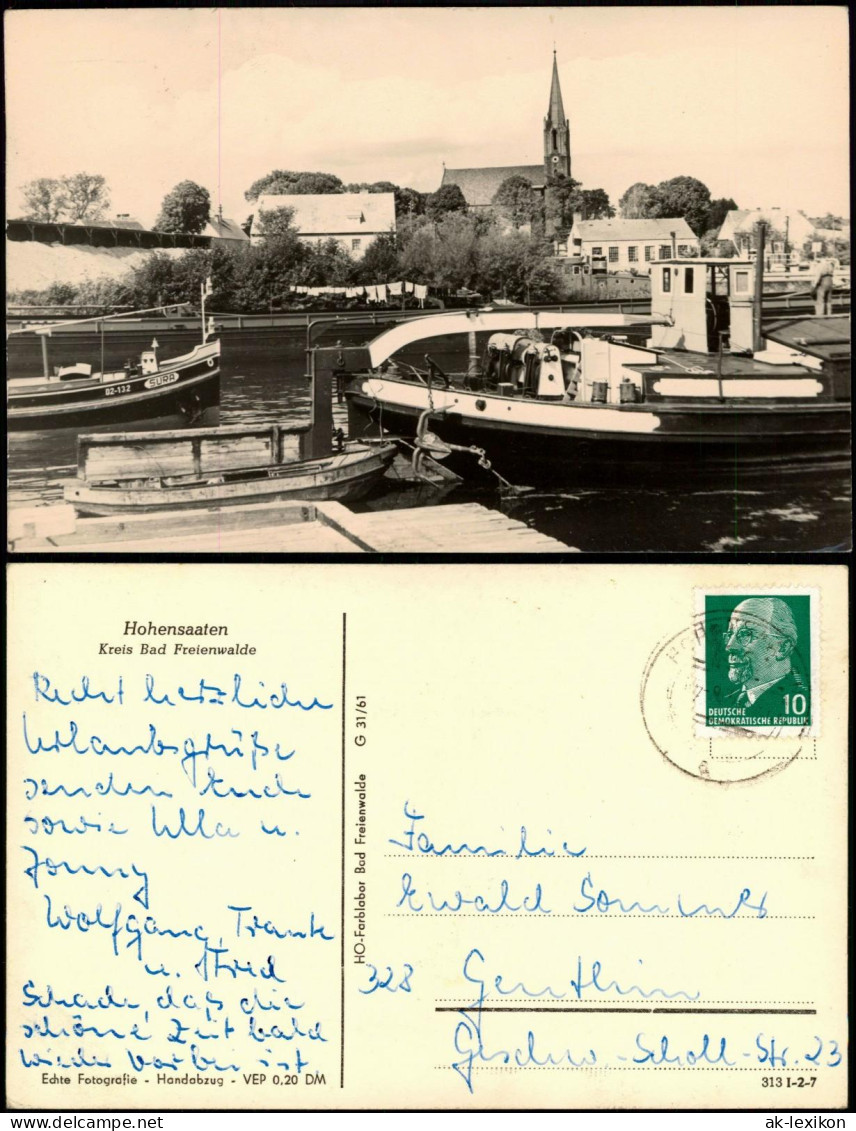 SURA
DZ-132
Hohensaaten
Kreis Bad Freienwalde
Recht herzliche
Urlaubsgrüße
senden Euch
sowie Ulla u.
Jonny
Wolfgang,
u.
Schade, daß die
schöne Zeit bald
wieder vorbei ist
Echte Fotografie - Handabzug - VEP 0,20 DM
HO-Farblabor Bad Freienwalde G 31/61
10
DEUTSCHE
DEMOKRATISCHE REPUBLIK
Familie
Ewald Sommer
328 Genthin
Geschw.-Scholl-Str. 23
313 I-2-7
ak-lexikon.de
ak-lexikon.com